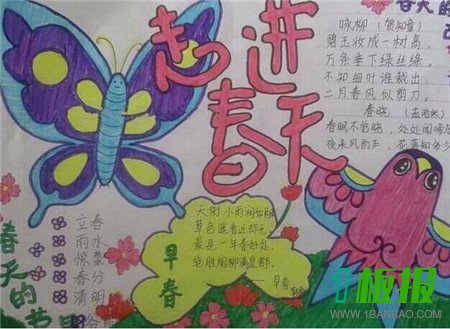 走进
春天
春天的
咏柳 (贺知章)
碧玉妆成一树高,
万条垂下绿丝绦,
不知细叶谁裁出,
二月春风似剪刀.
春晓 (孟浩然)
春眠不觉晓,处处闻啼
夜来风雨声,花落知多少
春天的节
立春
雨水
惊蛰
春分
清明
早春
天街小雨润如酥
草色遥看近却无
最是一年春好处
绝胜烟柳满皇都
——早春
1板报
WWW.1BANBAO.COM